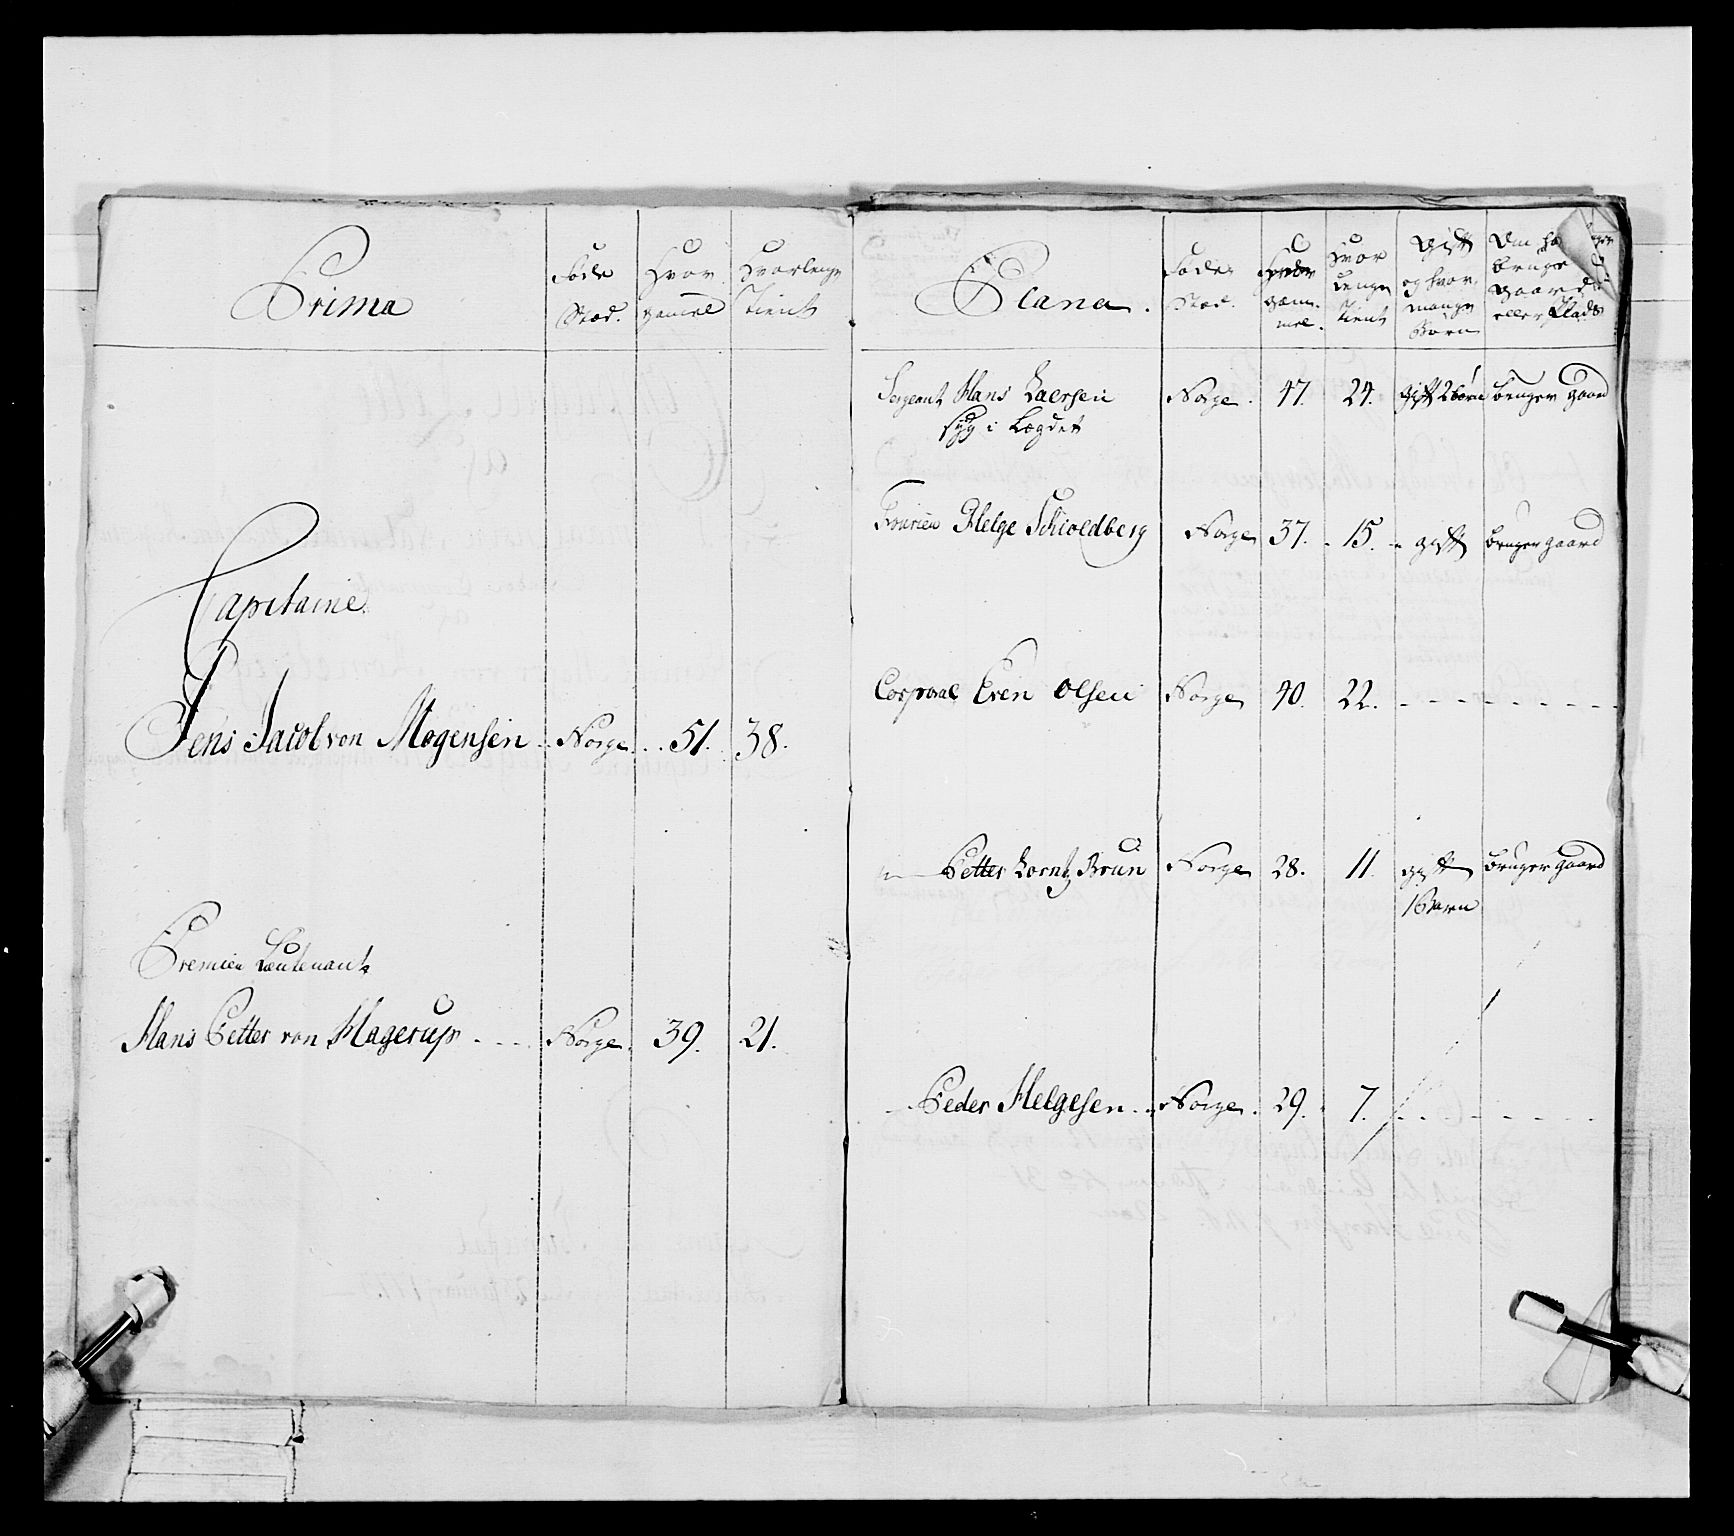 Prima
Føde Stæd.
Hvor gammel
Hvorlenge Tient
Capitaine
Jens Jacob von Mogensen .. Norge. .. 51. 38.
Premier Lieutenant
Hans Petter von Hagerup .... Norge. 39. 21.
Plana.
Føde Stæd.
Hvor gam mel.
Hvor lenge Tient
Gift og hvor mange Børn
Om bruger gaard eller Plads
Sergeant Hans Laersen Norge. 47. 24. gift 2 børn bruger gaard
syg i Lægdet
Fourier Helge Schioldberg Norge 37. 15. gift bruger gaard
Corporal Even Olsen Norge 40. 22. - - - - - -
Petter Lorntz Brun Norge 28. 11. gift bruger gaard
1 Barn
Peder Helgesen. Norge. 29. 7. - - - - - -